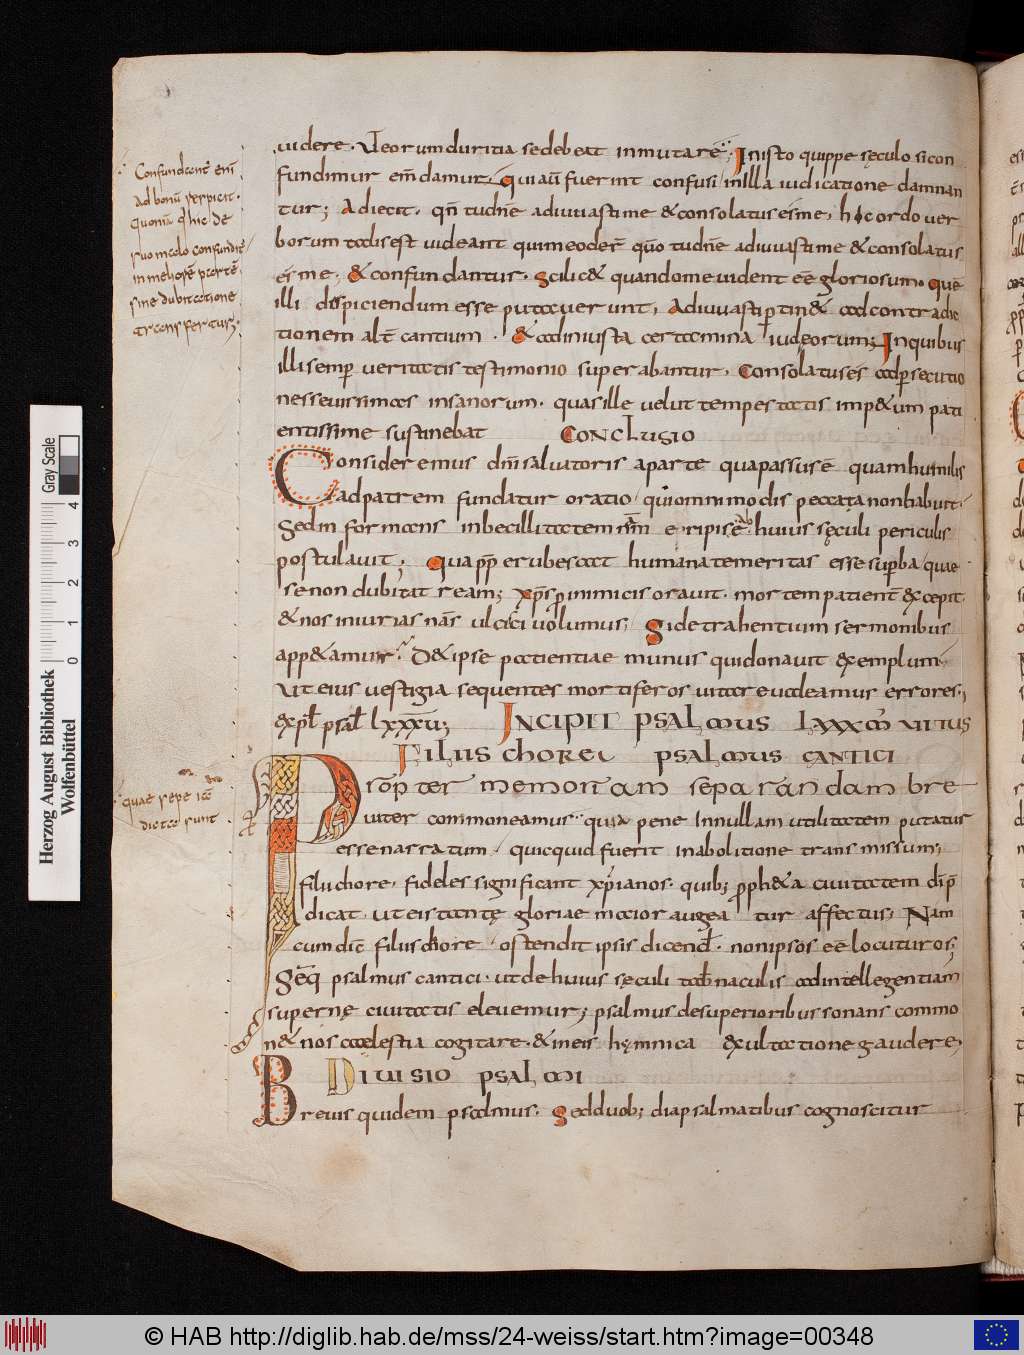 uidere. Ueorum duritia se debeat inmutare; In isto quippe sęculo si con
fundimur em̄damur. Qui aut̄ fuerint confusi in illa iudicatione damnan
tur; Adiecit. qn̄ tu dn̄e adiuuasti me & consolatus es me, hic ordo uer
borum talis est uideant qui me oder̄ quō tu dn̄e adiuuasti me & consolatus
es me. & confundantur. Scilic& quando me uident eē gloriosum. quē
illi despiciendum esse putauerunt, Adiuuasti ptin& ad contradic
tionem alt̄cantium. & ad iniusta certamina iudeorum; In quibus
illi semp ueritatis testimonio superabantur. Consolatus es ad psecutio
nes seuissimas insanorum. quas ille uelut tempestatis imp&um pati
entissime sustinebat CONCLUSIO
Consideremus dn̄i saluatoris a parte qua passus ē quam humilis
ad patrem fundatur oratio, qui omnimodis peccata non habuit.
Sed infor mans inbecillitatem nr̄m eripi se huius sęculi periculis
postulauit; Qua pp̄ erubescat humana temeritas esse supba, quae
se non dubitat ream; xp̄s p inimicis orauit. mortem patient̄ excepit.
& nos iniurias nr̄as ulcisci uolumus, Si detrahentium sermonibus
app&amur. D& ipse patientiae munus qui donauit exemplum,
Ut eius uestigia sequentes mortiferos uitare ualeamus errores;
expl̄ psal̄ lxxxu; INCIPIT PSALMUS LXXXVI
FILIIS CHORE PSALMUS CANTICI
Propter memoriam separandam bre
uiter commoneamus quia pene in nullam utilitatem putatus
esse narratum. quicquid fuerit in abolitione transmissum;
filii chore, fideles significant xp̄ianos. quib; pph&a ciuitatem dī p̄
dicat. ut eis tantę gloriae maior augeatur affectus, Nam
cum dic̄ filiis chore, ostendit ipsis dicend. non ipsos eē locuturos;
Seq̄ psalmus cantici. ut de huius sęculi tab̄naculis ad intellegentiam
supernę ciuitatis eleuemur; psalmus de superioribus sonans commo
n& nos caelestia cogitare. & in eis hymnica exultatione gaudere;
DIUISIO PSALMI
Breuis quidem psalmus. Sed duob; diapsalmatibus cognoscitur
Confundent̄ eni
ad bonū
quoniā hic de
ruo malo confundit̄
in meliorē partē
sine dubitatione
transfertur;
quae sepe iā
dicta sunt
Herzog August Bibliothek
Wolfenbüttel
0 1 2 3 4
Gray Scale
© HAB http://diglib.hab.de/mss/24-weiss/start.htm?image=00348